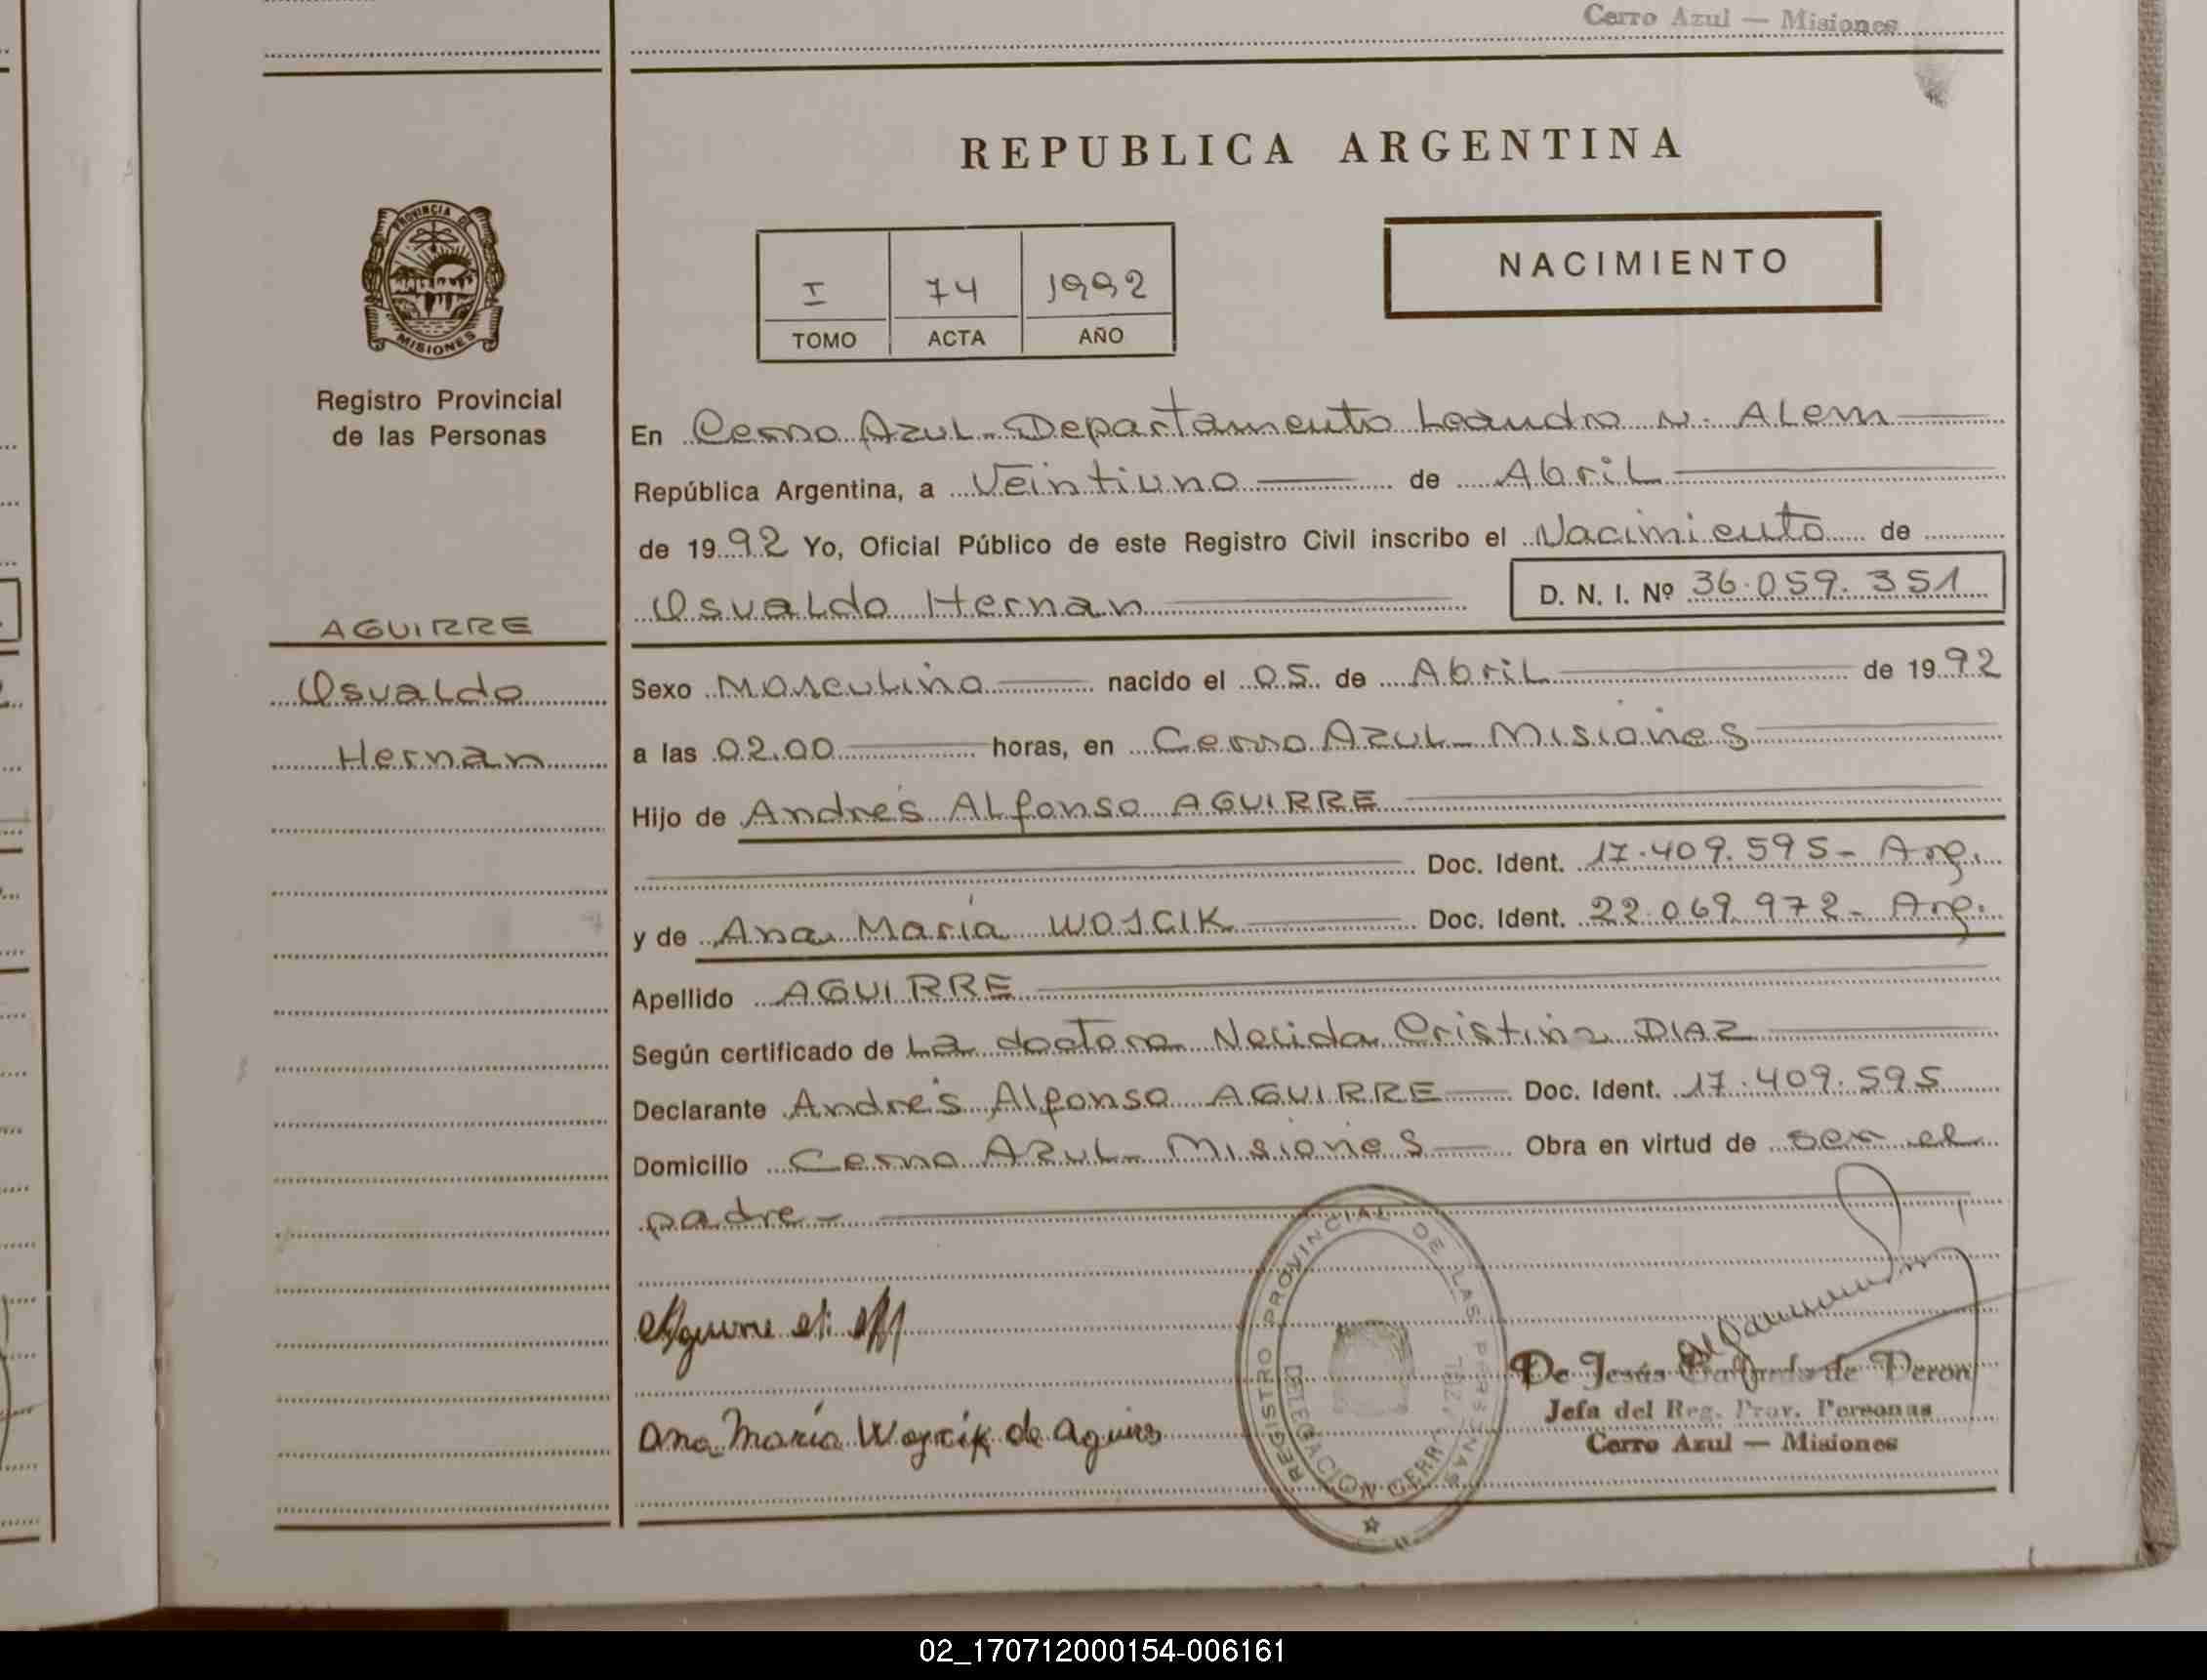 Cerro Azul — Misiones
REPUBLICA ARGENTINA
PROVINCIA DE
MISIONES
Registro Provincial
de las Personas
I 74 1992
TOMO ACTA AÑO
NACIMIENTO
En Cerro Azul - Departamento Leandro N. Alem
República Argentina, a Veintiuno de Abril
de 1992 Yo, Oficial Público de este Registro Civil inscribo el Nacimiento de
Osvaldo Hernan D. N. I. Nº 36.059.351
AGUIRRE
Osvaldo
Hernan
Sexo Masculino nacido el 05 de Abril de 1992
a las 02.00 horas, en Cerro Azul - Misiones
Hijo de Andrés Alfonso AGUIRRE
Doc. Ident. 17.409.595 - Arg.
y de Ana María WOJCIK Doc. Ident. 22.069.972 - Arg.
Apellido AGUIRRE
Según certificado de La doctora Nelida Cristina DIAZ
Declarante Andrés Alfonso AGUIRRE Doc. Ident. 17.409.595
Domicilio Cerro Azul - Misiones Obra en virtud de ser el
padre -
Ana María Wojcik de Aguirre
REGISTRO PROVINCIAL DE LAS PERSONAS
DELEGACION CERRO AZUL
De Jesús de Deron
Jefa del Reg. Prov. Personas
Cerro Azul — Misiones
02_170712000154-006161